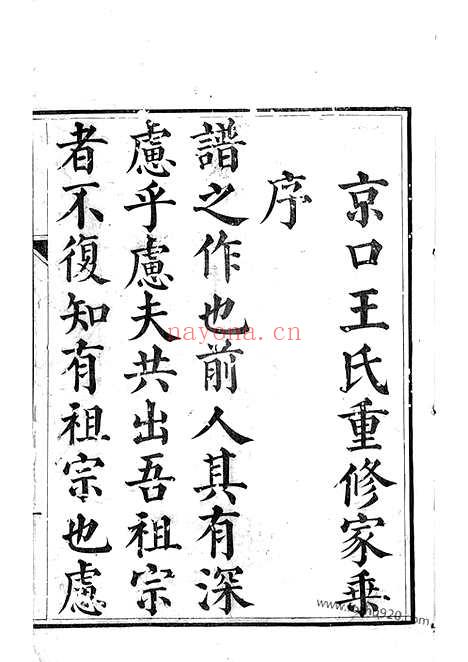 京口王氏重修家乗
序
譜之作也前人其有深
慮乎慮夫共出吾祖宗
者不復知有祖宗也慮
nayona.cn